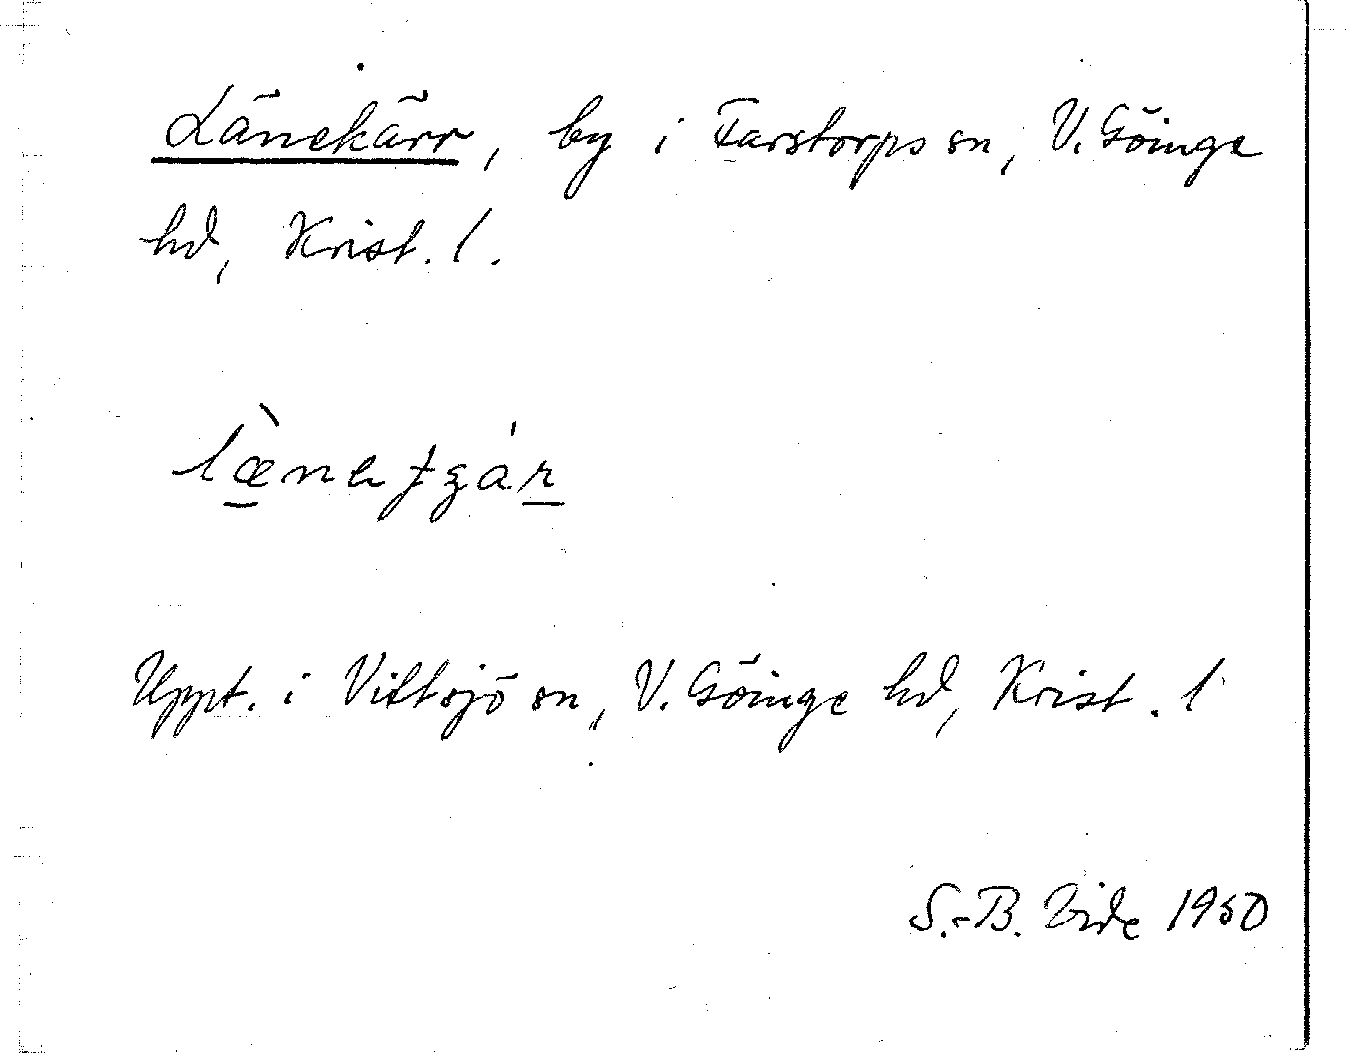 Länekärr, by i Farstorps sn, V. Göinge
hd, Krist. l.
Uppt. i Vittsjö sn, V. Göinge hd, Krist. l
S.-B. Vide 1950